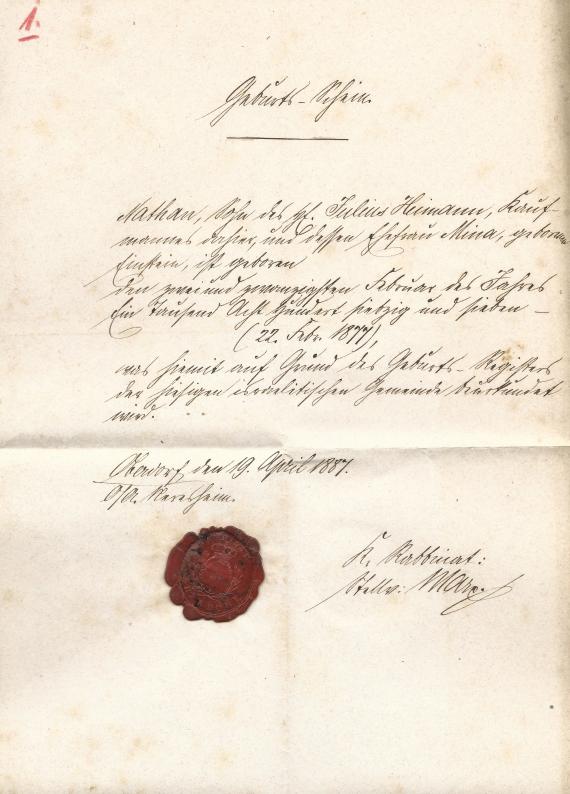 1.
Geburts-Schein.
Nathan, Sohn des H. Julius Heimann, Kauf-
mannes dahier, und dessen Ehefrau Mina, geborene
Einstein, ist geboren
den zwei und zwanzigsten Februar des Jahres
Ein Tausend Acht Hundert siebzig und sieben –
(22. Febr. 1877),
was hiemit auf Grund des Geburts-Registers
der hiesigen israelitischen Gemeinde beurkundet
wird.
Oberdorf, den 19. April 1887.
O/A. Neresheim.
K. Rabbinat:
Stellv: Marx